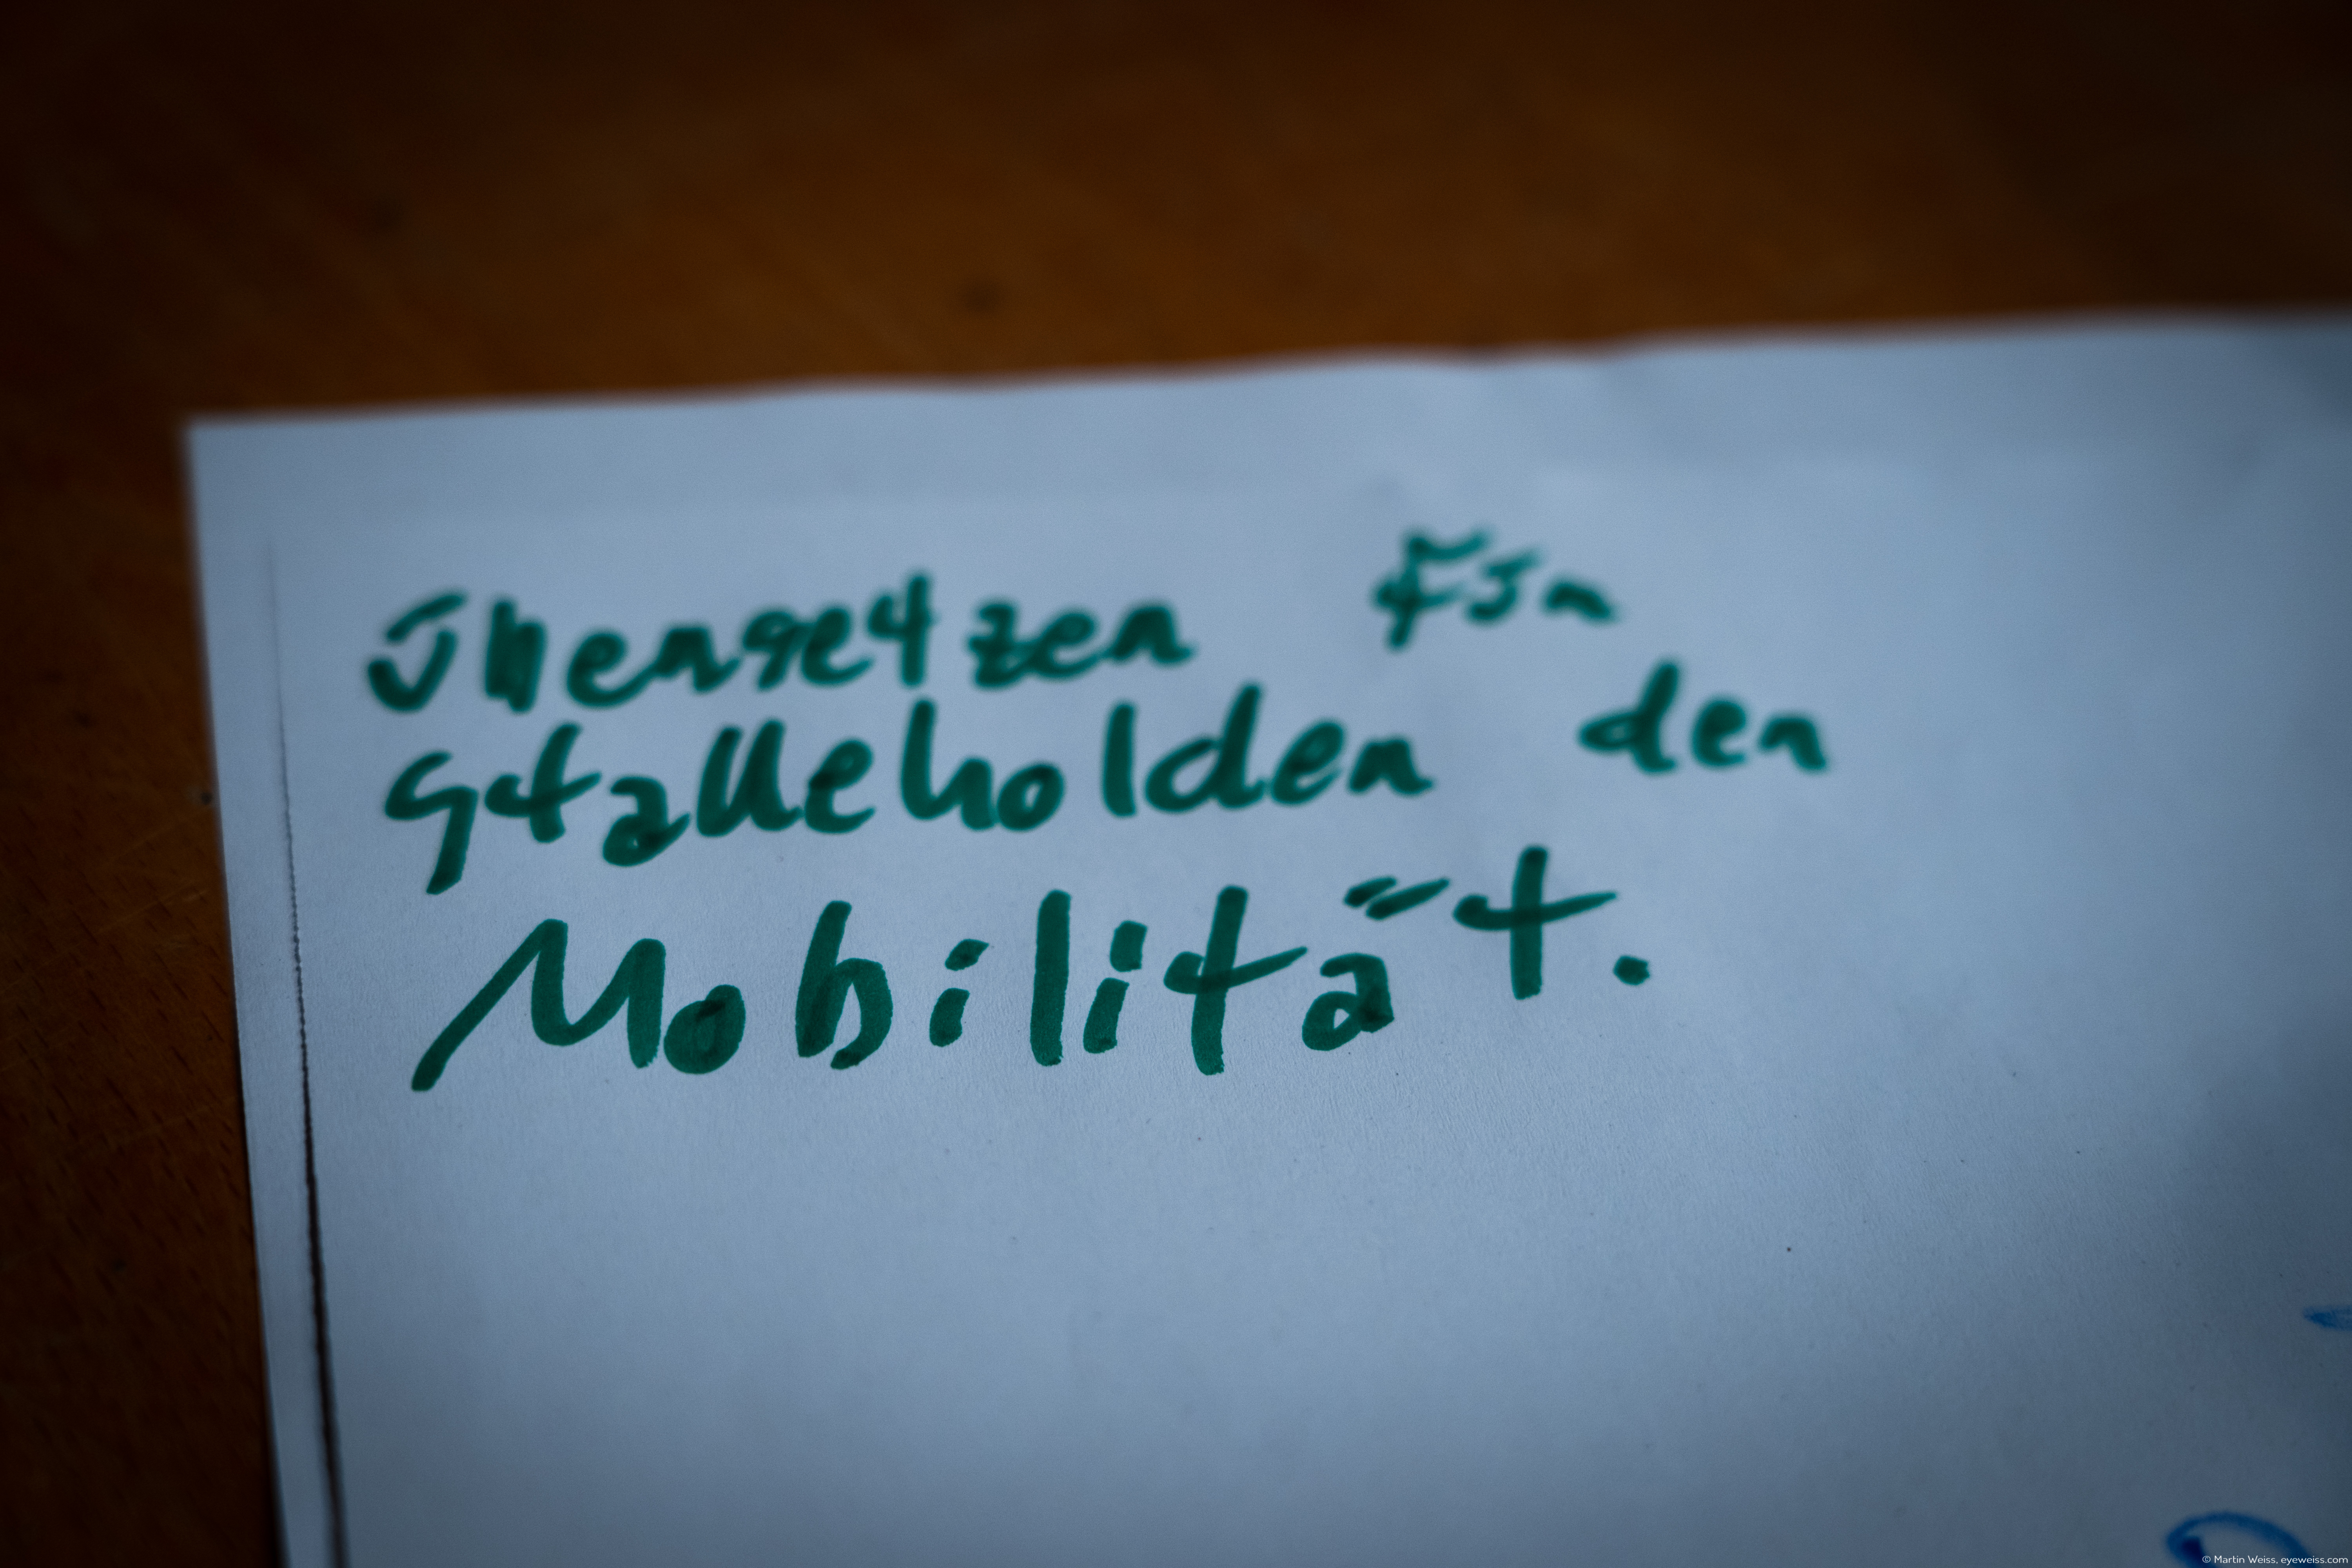 übersetzen für
Stakeholder der
Mobilität.
© Martin Weiss, eyeweiss.com